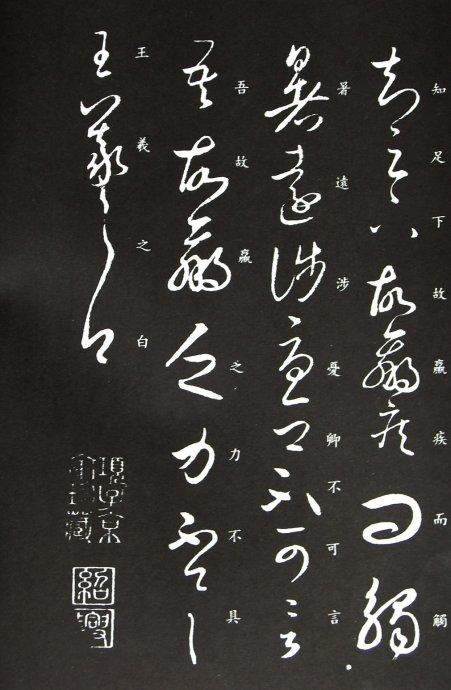 知足下故羸疾而觸
暑遠涉憂卿不可言
吾故羸乏力不具
王羲之白
項子京家珍藏
紹興